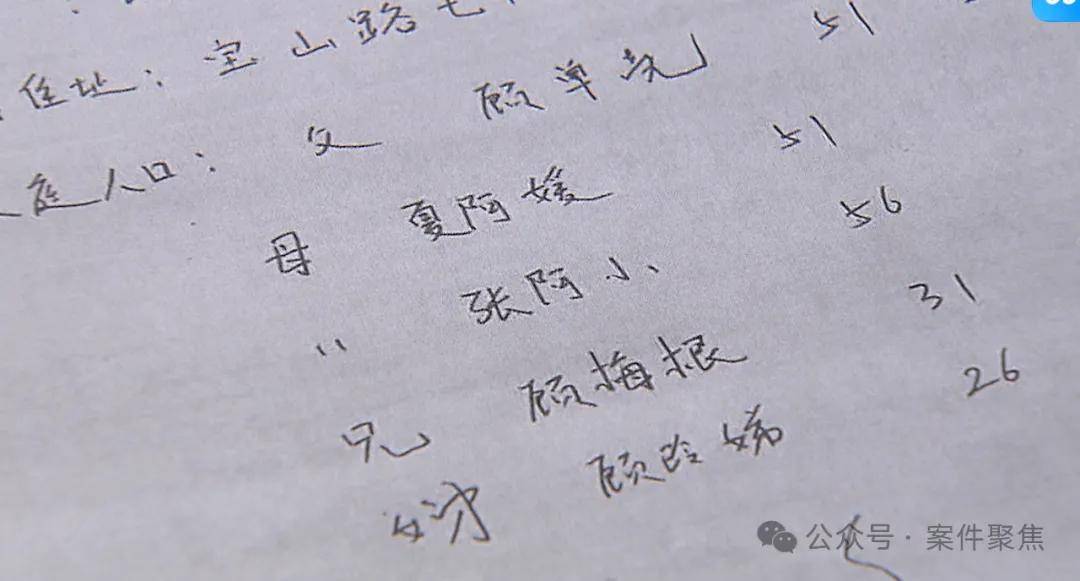 住址：宝山路七
庭人口：父 顾单先 51
母 夏阿媛 51
〃 张阿小 56
兄 顾梅根 31
妹 顾玲娣 26
公众号·案件聚焦